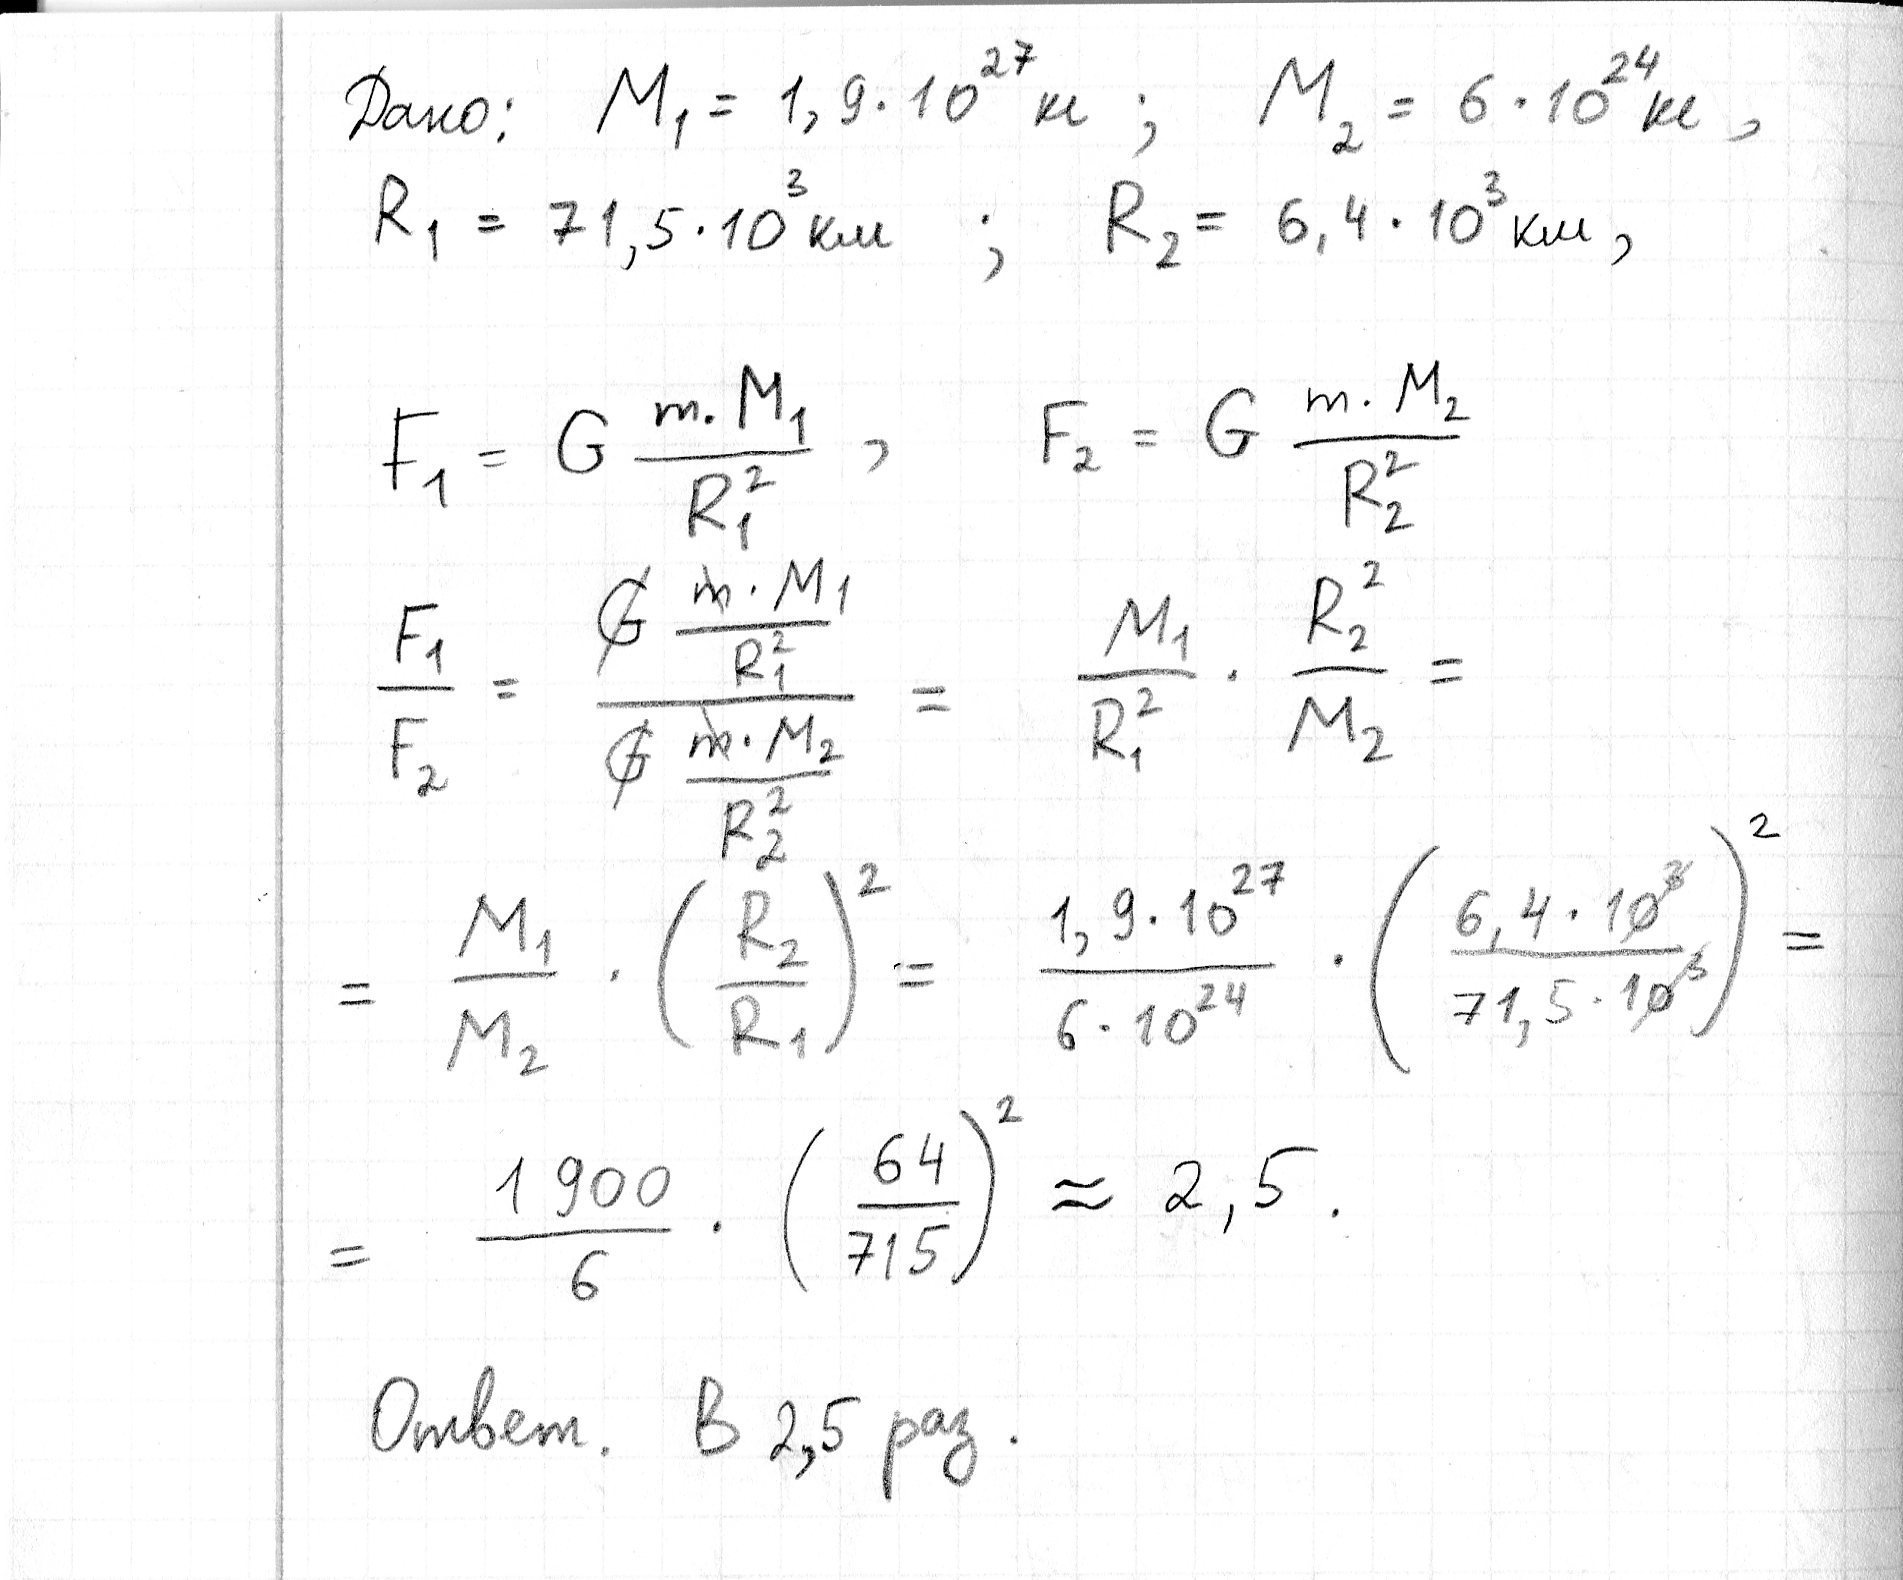 Дано: M₁ = 1,9·10²⁷ кг ; M₂ = 6·10²⁴ кг ,
R₁ = 71,5·10³ км ; R₂ = 6,4·10³ км ,
F₁ = G (m·M₁)/R₁² , F₂ = G (m·M₂)/R₂²
F₁/F₂ = (G (m·M₁)/R₁²)/(G (m·M₂)/R₂²) = M₁/R₁² · R₂²/M₂ =
= M₁/M₂ · (R₂/R₁)² = (1,9·10²⁷)/(6·10²⁴) · ((6,4·10³)/(71,5·10³))² =
= 1900/6 · (64/715)² ≈ 2,5.
Ответ. В 2,5 раз.